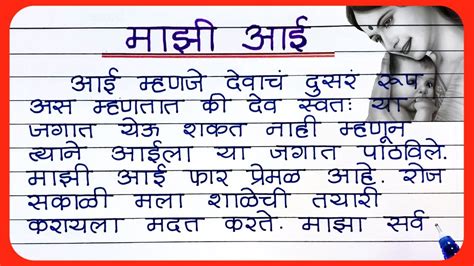 माझी आई
आई म्हणजे देवाचं दुसरं रूप
अस म्हणतात की देव स्वतः या
जगात येऊ शकत नाही म्हणून
त्याने आईला या जगात पाठविले.
माझी आई फार प्रेमळ आहे. रोज
सकाळी मला शाळेची तयारी
करायला मदत करते. माझा सर्व